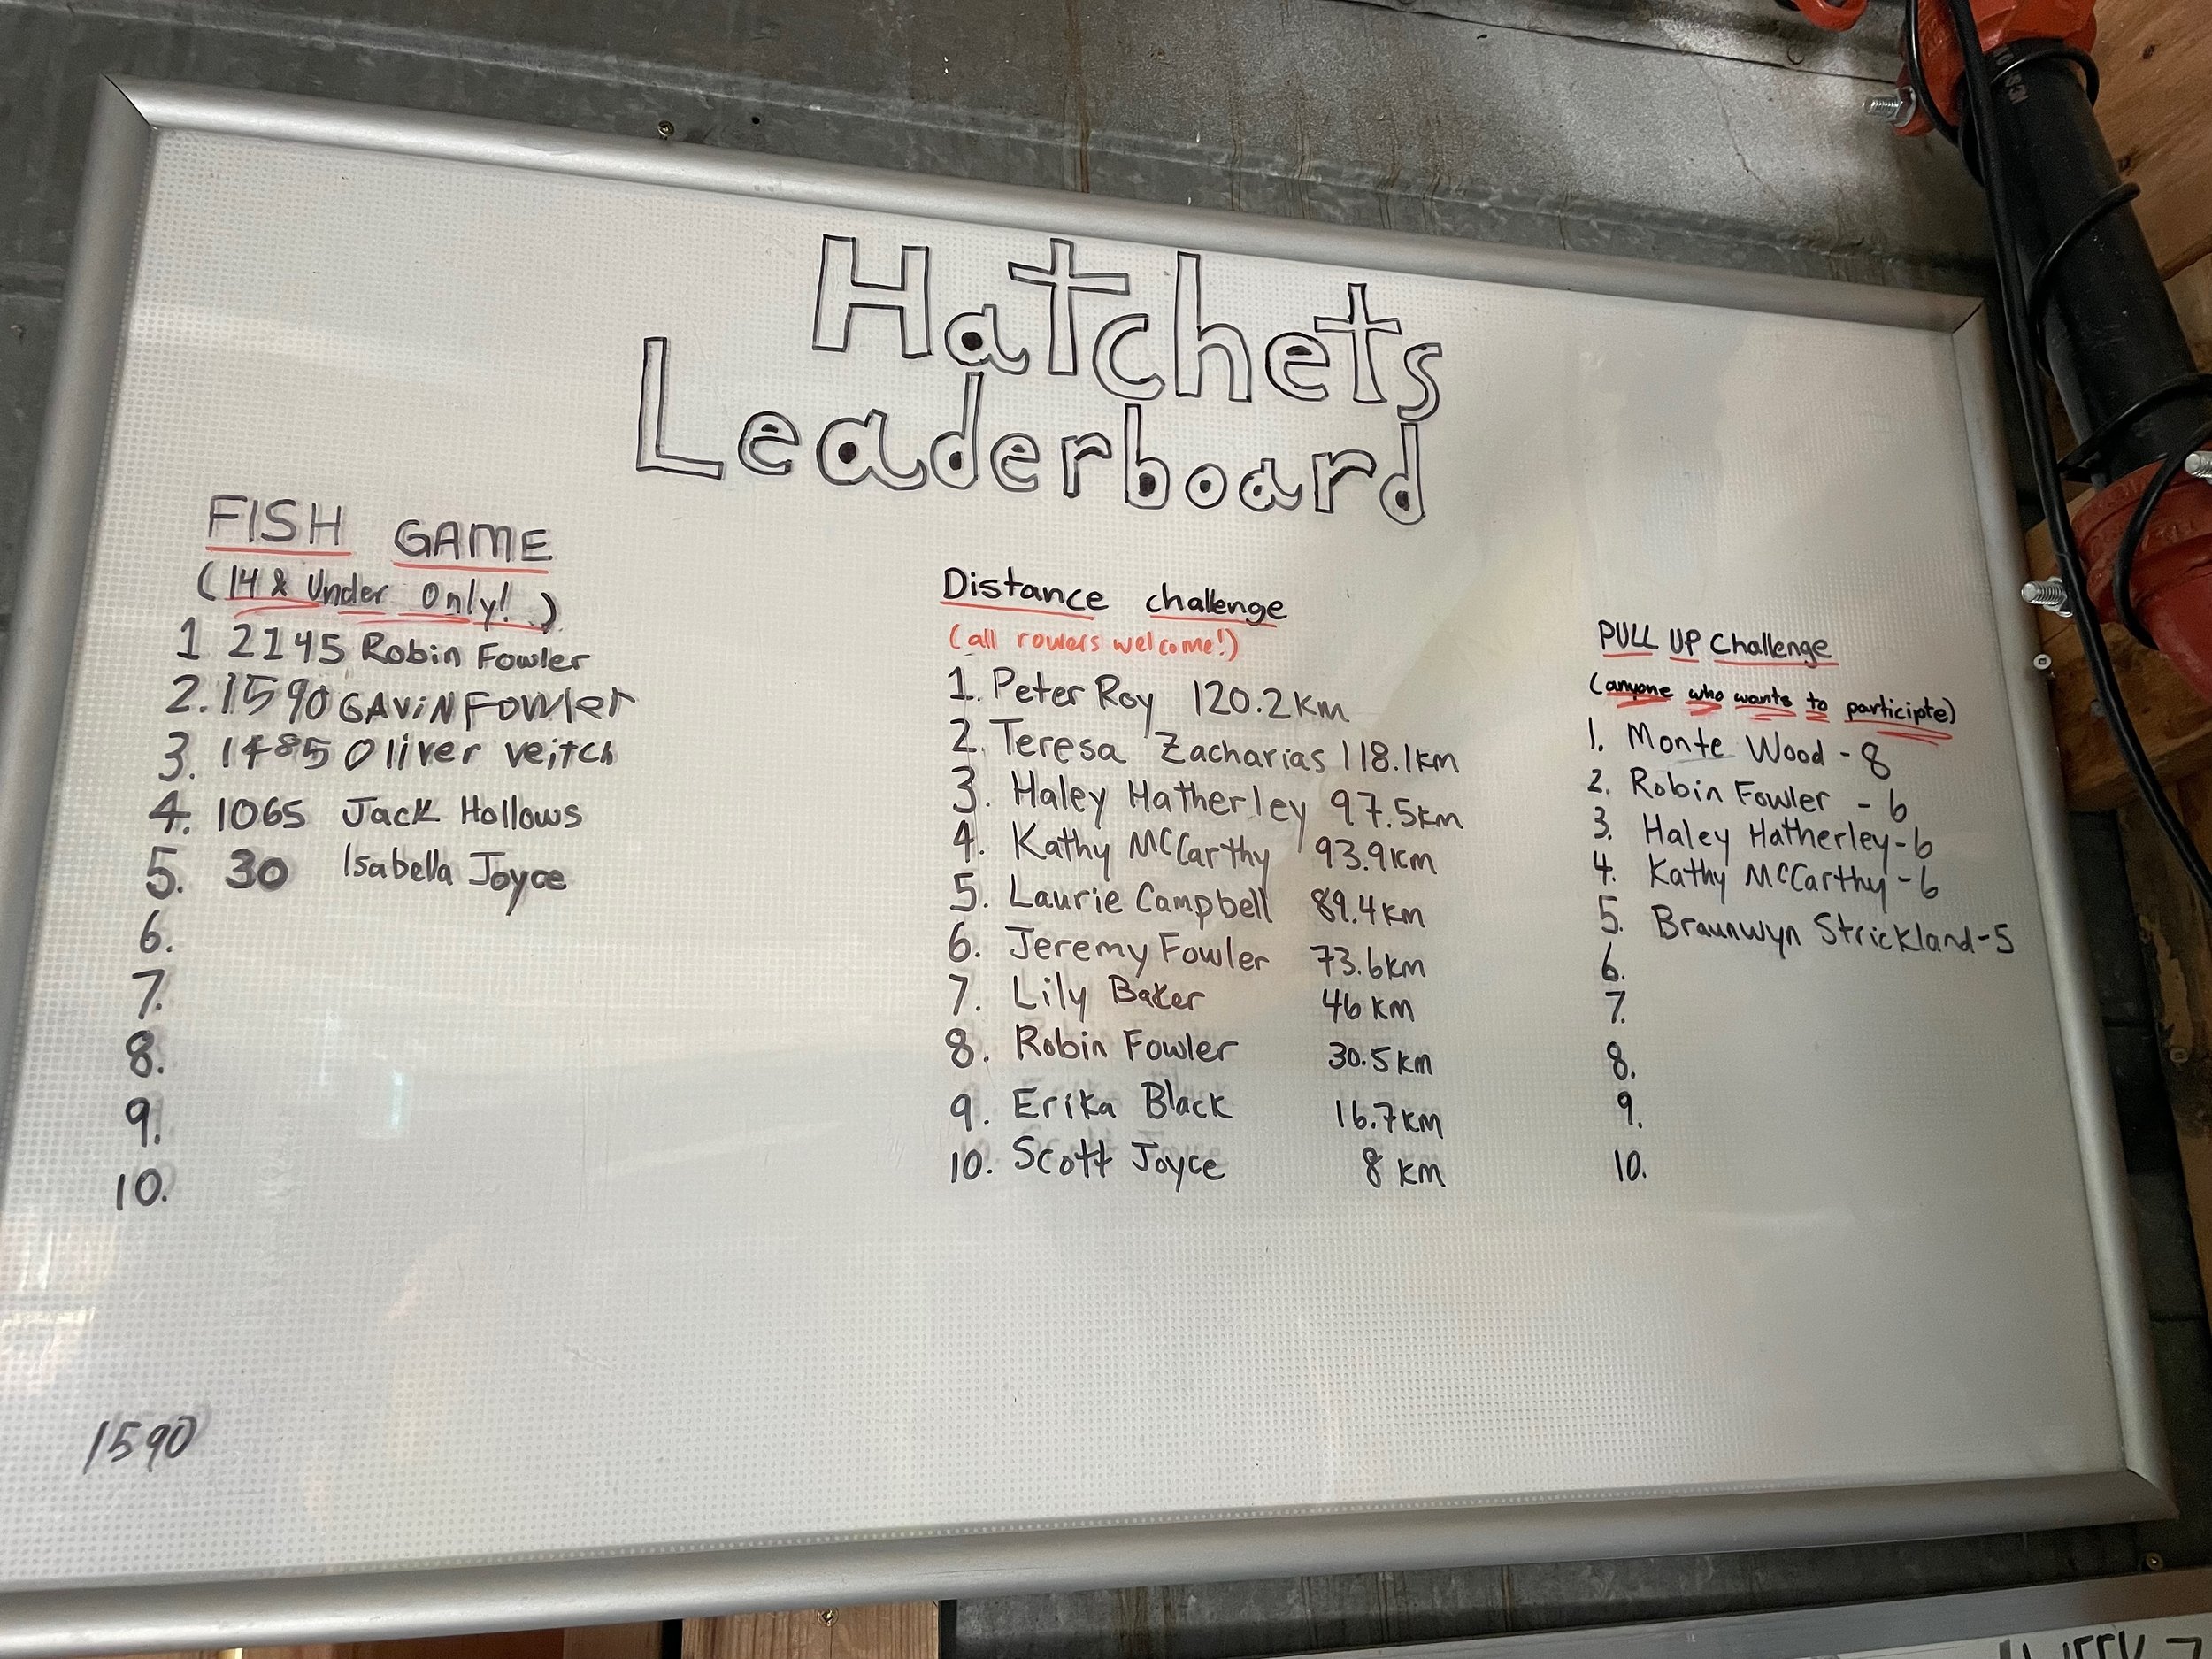 Hatchets
Leaderboard
FISH GAME
(14 & Under Only!)
1 2145 Robin Fowler
2. 1590 GAViN FOWler
3. 1485 Oliver Veitch
4. 1065 Jack Hollows
5. 30 Isabella Joyce
6.
7.
8.
9.
10.
1590
Distance challenge
(all rowers welcome!)
1. Peter Roy 120.2km
2. Teresa Zacharias 118.1km
3. Haley Hatherley 97.5km
4. Kathy McCarthy 93.9km
5. Laurie Campbell 89.4km
6. Jeremy Fowler 73.6km
7. Lily Baker 46 km
8. Robin Fowler 30.5 km
9. Erika Black 16.7km
10. Scott Joyce 8 km
PULL UP Challenge
(anyone who wants to participte)
1. Monte Wood - 8
2. Robin Fowler - 6
3. Haley Hatherley - 6
4. Kathy McCarthy - 6
5. Braunwyn Strickland - 5
6.
7.
8.
9.
10.